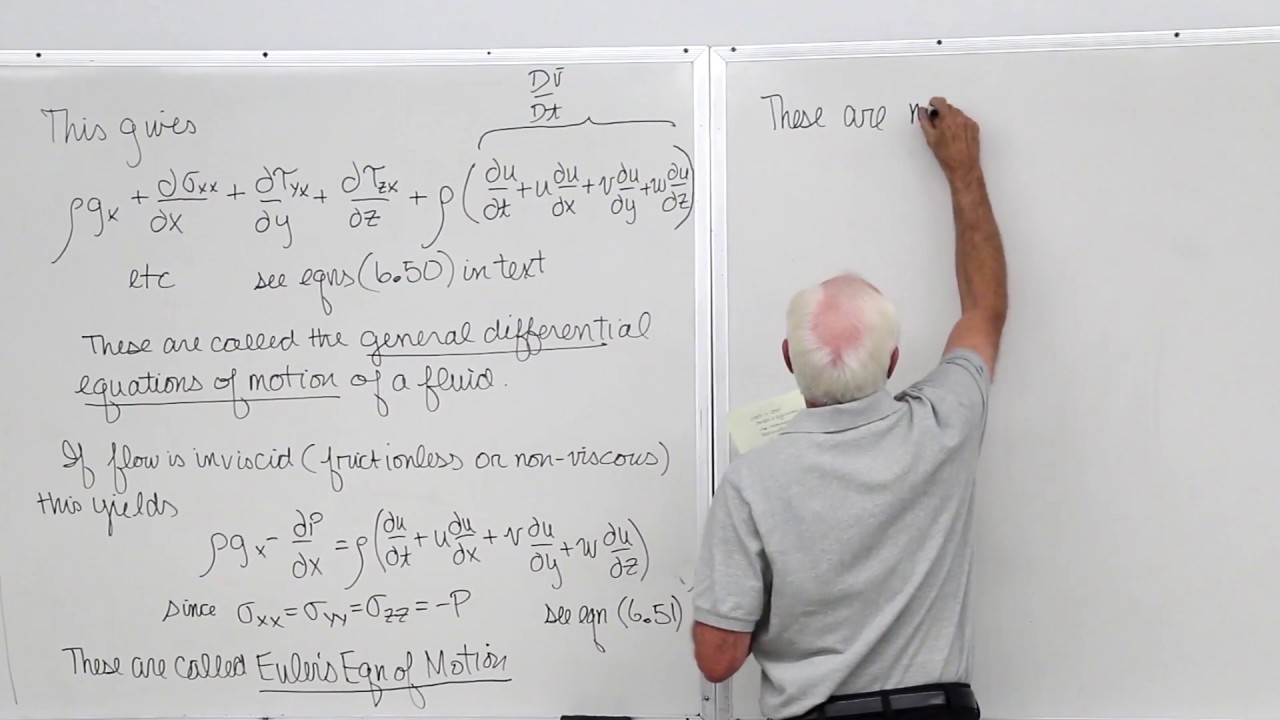 This gives
Dv̄/Dt
ρgₓ + ∂σₓₓ/∂x + ∂τyx/∂y + ∂τzx/∂z + ρ(∂u/∂t + u∂u/∂x + v∂u/∂y + w∂u/∂z)
etc see eqns (6.50) in text
These are called the general differential
equations of motion of a fluid.
If flow is inviscid (frictionless or non-viscous)
this yields
ρgₓ - ∂P/∂x = ρ(∂u/∂t + u∂u/∂x + v∂u/∂y + w∂u/∂z)
since σxx = σyy = σzz = -P see eqn (6.51)
These are called Euler's Eqn of Motion
These are